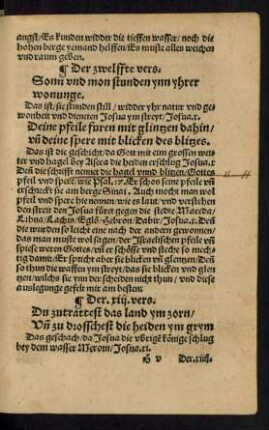 angst/Es kunden widder die tieffen wasser/noch die
hohen berge yemand helffen/Es muste alles weichen
vnd raum geben.
¶ Der zwelffte vers.
Sonn vnd mon stunden ynn yhrer
wonunge.
Das ist/sie stunden still/widder yhr natur vnd ge-
wonheit vnd dieneten Josua ym streyt/Josua.x.
Deine pfeile furen mit glintzen dahin/
vn̄ deine spere mit blicken des blitzes.
Das ist die geschicht/da Gott mit eim grossen wet-
ter vnd hagel bey Aseca die heiden erschlug Josua.x
Den̄ die schrifft nennet die hagel vnnd blitzen/Gottes
pfeil vnd speer/wie Psal.17. Er schos seine pfeile vn̄
erschreckt sie am berge Sinai. Auch mocht man wol
pfeil vnd spere hie nennen/wie es laut/vnd verstehen
den streit den Josua füret gegen die stedte Maceda/
Libna/Lachis/Eglō/Hebron/Dabir/Josua.x. Den̄
die wurden so leicht eine nach der andern gewonnen/
das man muste wol sagen/der Jsraelischen pfeile vn̄
spiese weren Gottes/vn̄ er schösse vnd steche so mech-
tig damit/Er spricht aber sie blicken vn̄ glentzen/Den̄
so thun die waffen ym streyt/das sie blicken vnd glen-
nen/wilchs sie ynn der scheiden nicht thun/vnd diese
auslegunge gefelt mir am besten.
¶ Der.xiij.vers.
Du zutrattest das land ym zorn/
Vn̄ zu drosschest die heiden ym grym
Das geschach/da Josua die vbrige könige schlug
bey dem wasser Merom/Josua.xi.
H v Der.xiiij.